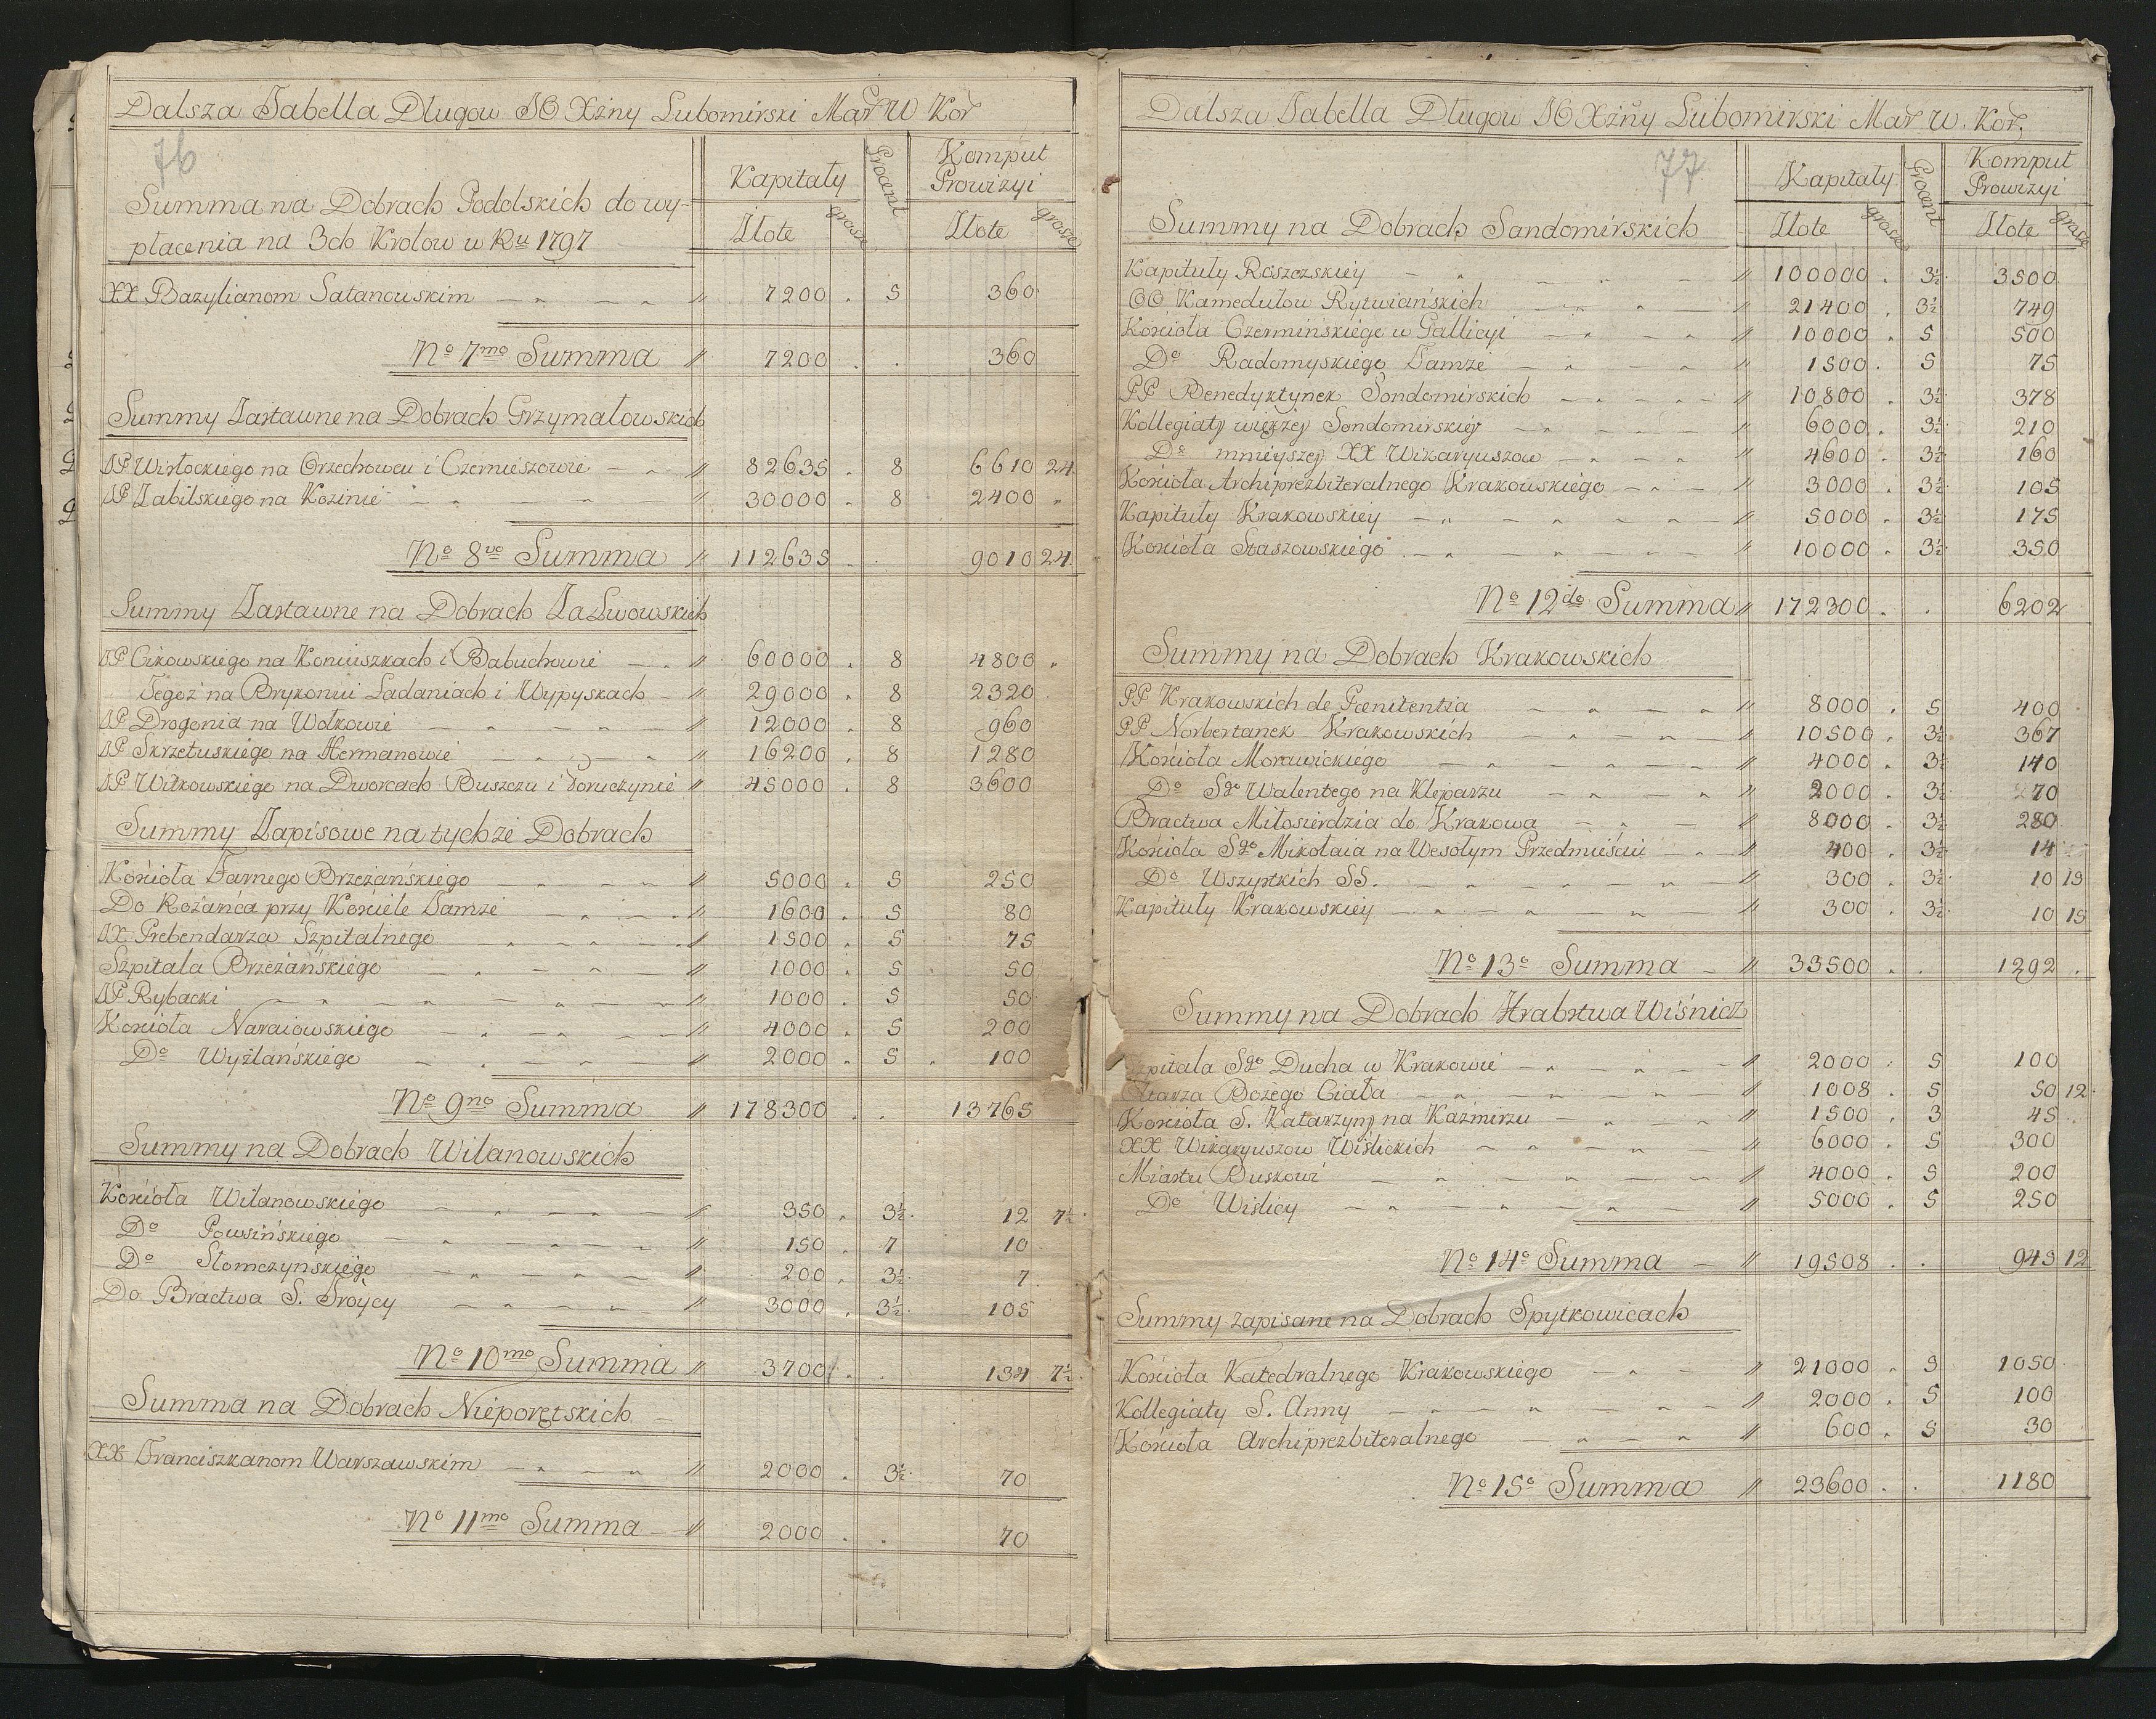 Dalsza Tabella Długow JO Xżny Lubomirski Mar W Kor
76
Kapitały Procent Komput Prowizyi
Złote grosze Złote grosze
Summa na Dobrach Podolskich do wy-
płacenia na 3ch Krolow w Ru 1797
XX Bazylianom Satanowskim 7200 . 5 360
No 7mo Summa 7200 . . 360
Summy Zastawne na Dobrach Grzymałowskich
JP Wisłockiego na Orzechowcu i Czerniszowie 82635 . 8 6610 24
JP Zabilskiego na Kozinie 30000 . 8 2400 "
No 8vo Summa 112635 . . 9010 24
Summy Zastawne na Dobrach Za Lwowskich
JP Cikowskiego na Koniuszkach i Babuchowie 60000 . 8 4800 "
Tegoż na Brykoniu Ladaniach i Wypyskach 29000 . 8 2320
JP Drogonia na Wołkowie 12000 . 8 960
JP Skrzetuskiego na Hermanowie 16200 . 8 1280
JP Witkowskiego na Dworcach Buszczu i Poruczynie 45000 . 8 3600
Summy Zapisowe na tychże Dobrach
Kościoła Farnego Brzeżańskiego 5000 . 5 250
Do Rożańca przy Kościele Tamże 1600 . 5 80
JX Prebendarza Szpitalnego 1500 . 5 75
Szpitala Brzeżańskiego 1000 . 5 50
JP Rybacki 1000 . 5 50
Kościoła Naraiowskiego 4000 . 5 200
Do Wyżlańskiego 2000 . 5 100
No 9no Summa 178300 . . 13765
Summy na Dobrach Wilanowskich
Kościoła Wilanowskiego 350 . 3½ 12 7½
Do Powsińskiego 150 . 7 10
Do Słomczyńskiego 200 . 3½ 7
Do Bractwa S. Troycy 3000 . 3½ 105
No 10mo Summa 3700 . . 134 7½
Summa na Dobrach Nieporętskich
XX Franciszkanom Warszawskim 2000 . 3½ 70
No 11mo Summa 2000 . . 70
Dalsza Tabella Długow JO Xżny Lubomirski Mar W. Kor.
77
Kapitały Procent Komput Prowizyi
Złote grosze Złote grosze
Summy na Dobrach Sandomirskich
Kapituły Roszczskiey 100000 . 3½ 3500
OO Kamedułow Rytwiańskich 21400 . 3½ 749
Kościoła Czermińskiego w Gallicyi 10000 . 5 500
Do Radomyskiego Tamże 1500 . 5 75
PP Benedyktynek Sondomirskich 10800 . 3½ 378
Kollegiaty większej Sondomirskiej 6000 . 3½ 210
Do mnieyszej XX Wikaryuszow 4600 . 3½ 160
Kościoła Archiprezbiteralnego Krakowskiego 3000 . 3½ 105
Kapituły Krakowskiey 5000 . 3½ 175
Kościoła Staszowskiego 10000 . 3½ 350
No 12do Summa 172300 . . 6202
Summy na Dobrach Krakowskich
PP Krakowskich de Pœnitentia 8000 . 5 400
PP Norbertanek Krakowskich 10500 . 3½ 367
Kościoła Morawickiego 4000 . 3½ 140
Do Sgo Walentego na Kleparzu 2000 . 3½ 70
Bractwa Miłosierdzia do Krakowa 8000 . 3½ 280
Kościoła Sgo Mikołaia na Wesołym Przedmieściu 400 . 3½ 14
Do Wszystkich SS. 300 . 3½ 10 15
Kapituły Krakowskiey 300 . 3½ 10 15
No 13o Summa 33500 . . 1292 .
Summy na Dobrach Hrabstwa Wiśnicz
pitala Sgo Ducha w Krakowie 2000 . 5 100
Ołtarza Bożego Ciała 1008 . 5 50 12
Kościoła S. Katarzyny na Kazimirzu 1500 . 3 45
XX Wikaryuszow Wislickich 6000 . 5 300
Miastu Buskowi 4000 . 5 200
Do Wislicy 5000 . 5 250
No 14o Summa 19508 . . 945 12
Summy zapisane na Dobrach Spytkowicach
Kościoła Katedralnego Krakowskiego 21000 . 5 1050
Kollegiaty S. Anny 2000 . 5 100
Kościoła Archiprezbiteralnego 600 . 5 30
No 15o Summa 23600 . . 1180